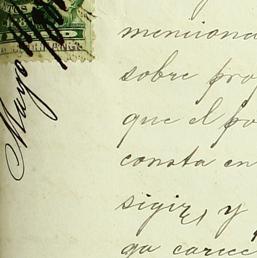 Mayo
menciona
sobre pro
que el po
consta en
sigir, y
ga carece